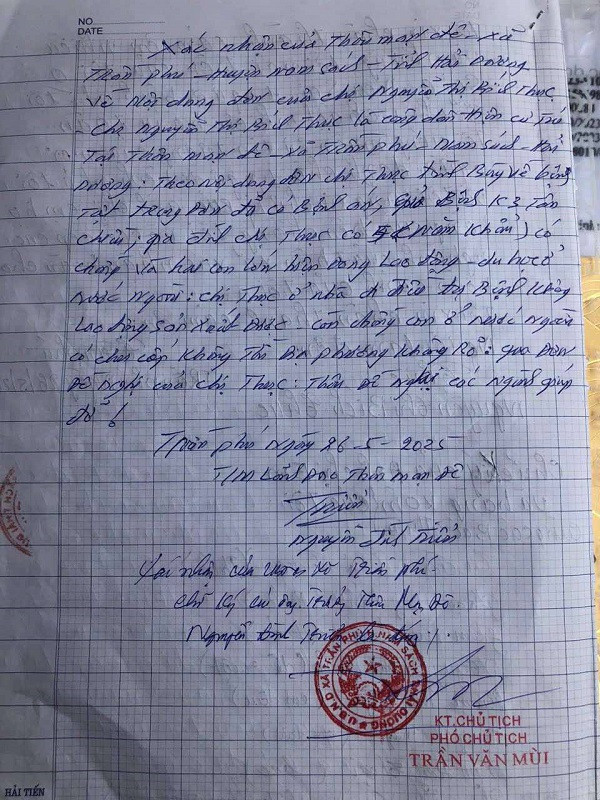 NO
DATE
Xác nhận của Thôn mạn đê - xã
Trần phú - Huyện nam sách - Tỉnh Hải Dương
Về Nội dung đơn của chị Nguyễn Thị Bích Thục
- Chị Nguyễn Thị Bích Thục là công dân hiện cư trú
Tại Thôn mạn đê - xã Trần phú - Nam sách - Hải
Dương. Theo nội dung đơn chị Thục trình Bày về bệnh
Tật trong Đơn đã có Bệnh án, Bệnh K3
gia đình chị Thục có 5 (năm khẩu) có
chồng và hai con lớn hiện đang lao động - du học ở
nước ngoài: chị Thục ở nhà đi điều trị Bệnh không
lao động sản xuất được còn chồng con ở nước ngoài
có chu cấp không Thì địa phương không Rõ: qua Đơn
Đề nghị của chị Thục: Thôn Đề nghị các ngành giúp
đỡ!
Trần phú ngày 26-5-2025
T/M Lãnh Đạo Thôn mạn Đê
Nguyễn Đình
Xác nhận của UBND xã Trần phú
chữ ký Trưởng Thôn Mạn Đê
Nguyễn Đình
U.B.N.D XÃ TRẦN PHÚ
KT.CHỦ TỊCH
PHÓ CHỦ TỊCH
TRẦN VĂN MÙI
HẢI TIẾN